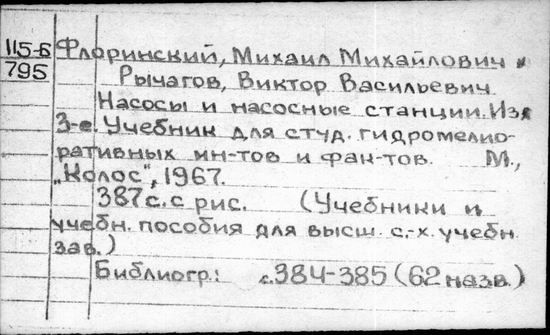 115-Б
795
Флоринский, Михаил Михайлович и
Рычагов, Виктор Васильевич.
Насосы и насосные станции. Изд
3-е. Учебник для студ. гидромелио-
ративных ин-тов и фак-тов. М.,
„Колос", 1967.
387 с. с рис. (Учебники и
учебн. пособия для высш. с.-х. учебн.
зав.)
Библиогр.: с. 384-385 (62 назв.)